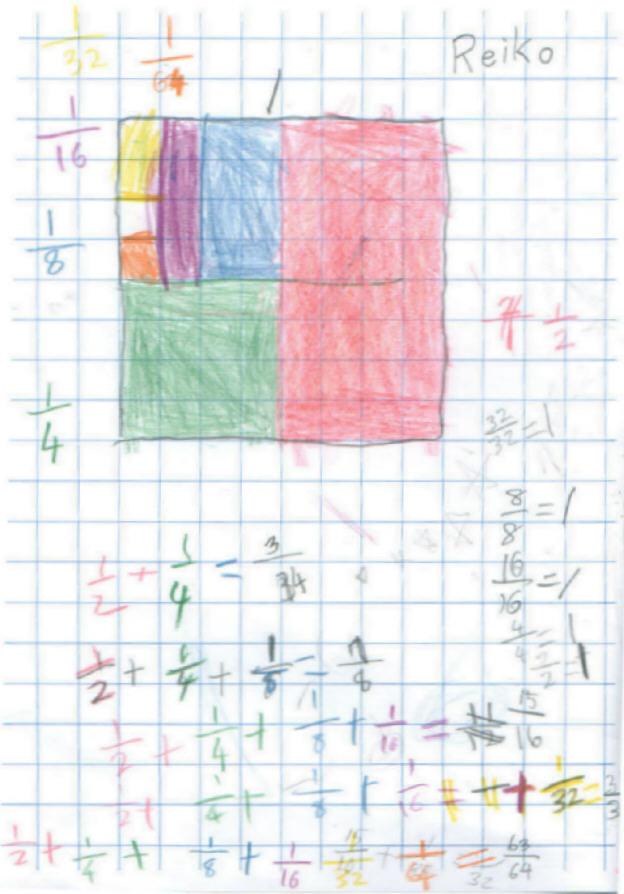 1/32 1/64 Reiko
1
1/16
1/8
1/2
1/4
32/32 = 1
8/8 = 1
16/16 = 1
4/4 = 1
2/2 = 1
1/2 + 1/4 = 3/4
1/2 + 1/4 + 1/8 = 7/8
1/2 + 1/4 + 1/8 + 1/16 = 15/16
1/2 + 1/4 + 1/8 + 1/16 + 1/32 =
1/2 + 1/4 + 1/8 + 1/16 1/64 = 63/64